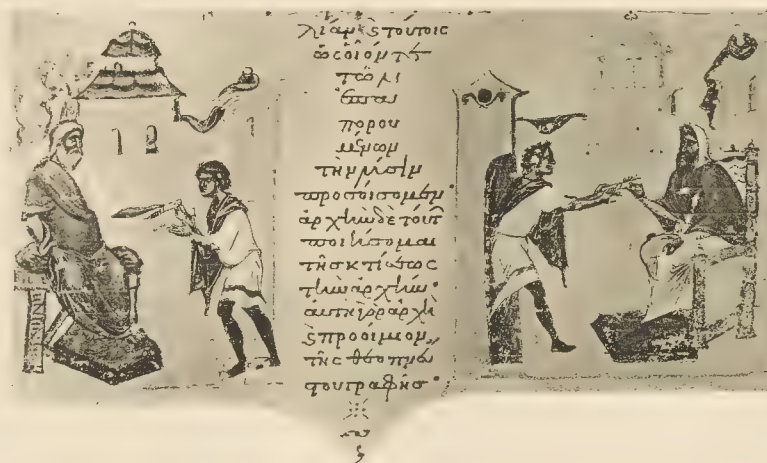 λίαν ϛ τούτοις
ὡς οἷόν τε
τῶν
ἐπα
πορου
μένων
τὴν λύσιν
προσοίσομεν·
ἀρχὴν δὲ τούτ
ποιήσομαι
τῆς κτίσεως
τὴν ἀρχήν·
αὕτη γὰρ ἀρχὴ
ϛ προοίμιον
τῆς θεοπνεύ
στου γραφῆς·